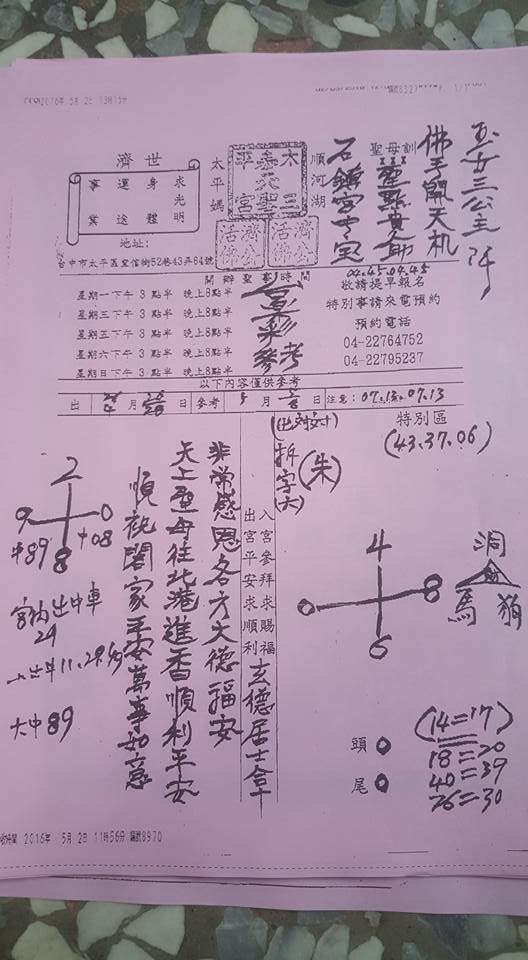 2016年 5月 2日 13時15分
玉女三公主
佛手開天机
聖母訓
聖點貴助
石鎮宮七宝
順河湖
木柵三
泰元聖
平宮
太平媽
濟公活佛
濟公活佛
濟世
求光明
身體
運途
事業
地址:
台中市太平區宜信街52巷43弄64號
開辦聖事時間
星期一下午 3 點半 晚上8點半
星期三下午 3 點半 晚上8點半
星期五下午 3 點半 晚上8點半
星期六下午 3 點半 晚上8點半
星期日下午 3 點半 晚上8點半
參考
04.45.04.45
敬請提早報名
特別事請來電預約
預約電話
04-22764752
04-22795237
以下內容僅供參考
出 月 日 參考 5 月 日 注意: 07.13.07.13
特別區
(43.37.06)
拆字六
(朱)
入宮參拜求賜福
出宮平安求順利
玄德居士拿
非常感恩各方大德福安
天上聖母往北港進香順利平安
順祝闔家平安萬事如意
2
9 0
8
中89
中08
24
大中89
4
0 8
6
洞
馬 狗
頭 0
尾 0
(14=17)
18=20
40=39
26=30
2016年 5月 2日 11時56分 編號8970